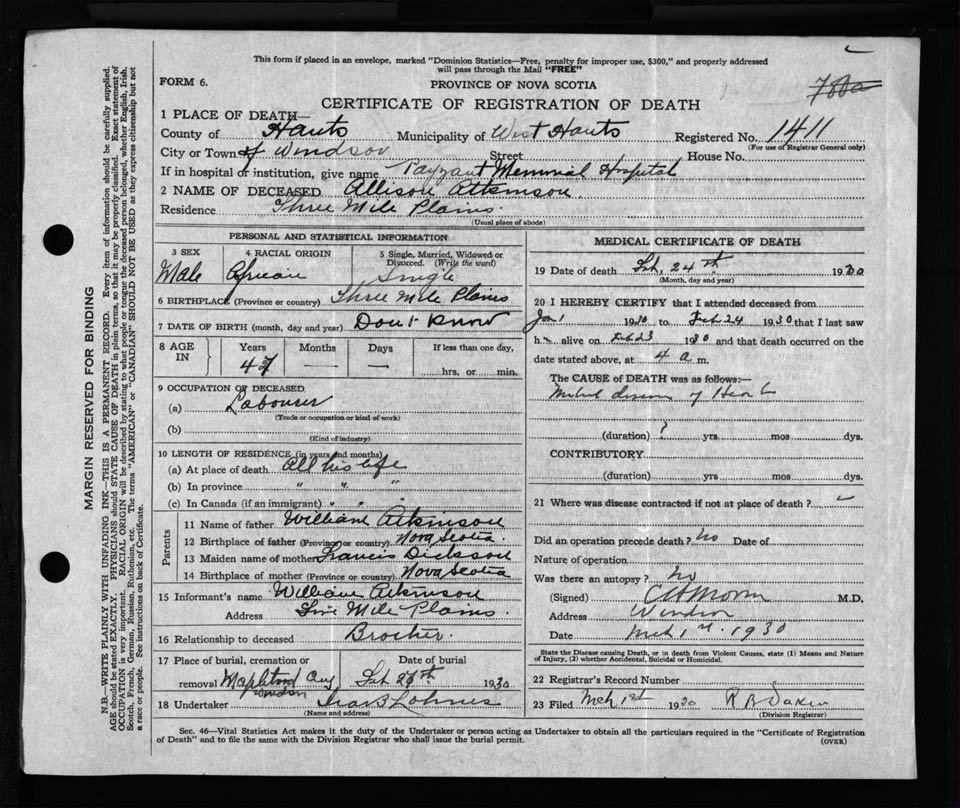 This form if placed in an envelope, marked "Dominion Statistics—Free, penalty for improper use, $300," and properly addressed
will pass through the Mail "FREE"
FORM 6.
PROVINCE OF NOVA SCOTIA
CERTIFICATE OF REGISTRATION OF DEATH
1 PLACE OF DEATH—
County of Hants Municipality of West Hants Registered No. 1411
(For use of Registrar General only)
City or Town of Windsor Street House No.
If in hospital or institution, give name Payzant Memorial Hospital
2 NAME OF DECEASED Allison Atkinson
Residence Three Mile Plains.
(Usual place of abode)
PERSONAL AND STATISTICAL INFORMATION
3 SEX Male
4 RACIAL ORIGIN African
5 Single, Married, Widowed or Divorced. (Write the word) Single
6 BIRTHPLACE (Province or country) Three Mile Plains
7 DATE OF BIRTH (month, day and year) Don't Know
8 AGE IN Years 47 Months — Days — If less than one day, hrs. or min.
9 OCCUPATION OF DECEASED
(a) Labourer
(Trade or occupation or kind of work)
(b)
(Kind of industry)
10 LENGTH OF RESIDENCE (in years and months)
(a) At place of death All his life
(b) In province " " "
(c) In Canada (if an immigrant) " " "
Parents
11 Name of father William Atkinson
12 Birthplace of father (Province or country) Nova Scotia
13 Maiden name of mother Francis Dickson
14 Birthplace of mother (Province or country) Nova Scotia
15 Informant's name William Atkinson
Address Three Mile Plains.
16 Relationship to deceased Brother.
17 Place of burial, cremation or removal Windsor
Date of burial 1930
18 Undertaker
(Name and address)
MEDICAL CERTIFICATE OF DEATH
19 Date of death Feb. 24th 1930
(Month, day and year)
20 I HEREBY CERTIFY that I attended deceased from
Jan 1 1930 to Feb 24 1930 that I last saw
h alive on Feb 23 1930 and that death occurred on the
date stated above, at 4 a m.
The CAUSE of DEATH was as follows:—
of Heart
(duration) ? yrs mos dys.
CONTRIBUTORY
(duration) yrs mos dys.
21 Where was disease contracted if not at place of death?
Did an operation precede death? no Date of
Nature of operation
Was there an autopsy? no
(Signed) M.D.
Address Windsor
Date Mch 1st. 1930
State the Disease causing Death, or in death from Violent Causes, state (1) Means and
Nature of Injury, (2) whether Accidental, Suicidal or Homicidal.
22 Registrar's Record Number
23 Filed Mch 1st 1930
(Division Registrar)
Sec. 46—Vital Statistics Act makes it the duty of the Undertaker or person acting as Undertaker to obtain all the particulars required in the "Certificate of Registration
of Death" and to file the same with the Division Registrar who shall issue the burial permit.
(OVER)
MARGIN RESERVED FOR BINDING
N.B.—WRITE PLAINLY WITH UNFADING INK—THIS IS A PERMANENT RECORD. Every item of information should be carefully supplied.
AGE should be stated EXACTLY. PHYSICIANS should STATE CAUSE OF DEATH in plain terms, so that it may be properly classified. Exact statement of
OCCUPATION is very important. RACIAL ORIGIN will be described by stating to what people or tongue the deceased person belonged, whether English, Irish,
Scotch, French, German, Russian, Ruthenian, etc. The terms "AMERICAN" or "CANADIAN" SHOULD NOT BE USED as they express citizenship but not
a race or people. See instructions on back of Certificate.